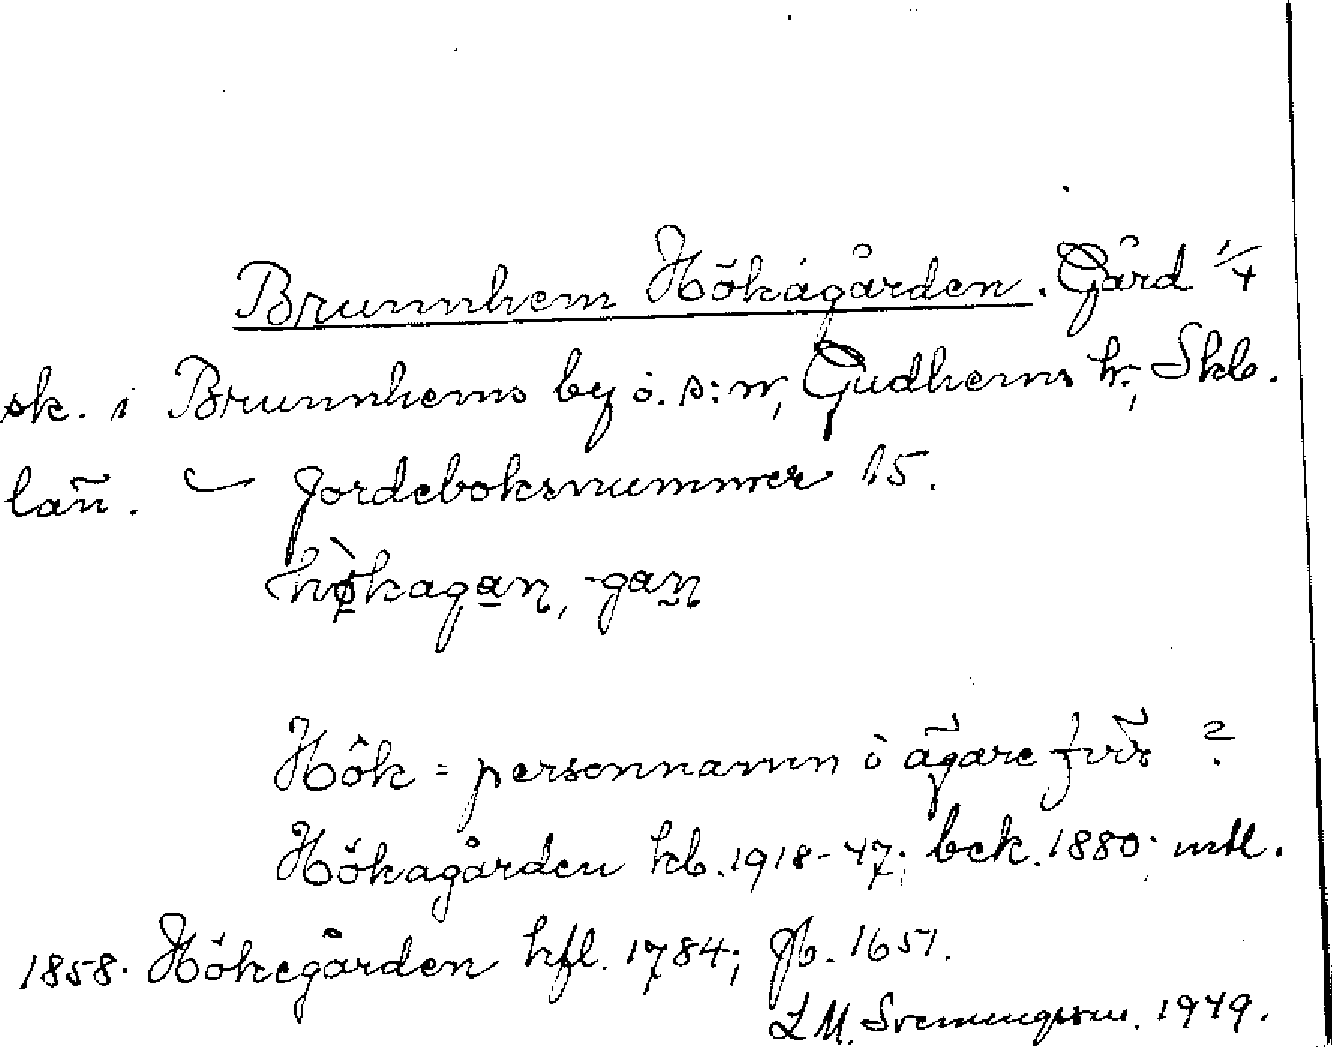 Brunnhem Hökagården. Gård 1/4
sk. i Brunnhems by o. s:n, Gudhems hr, Skb.
län. – Jordeboksnummer 15.
hø̀kagan, -gan
Hök = personnamn å ägare förr ?
Hökagården kb. 1918-47; bek. 1880; mtl.
1858. Hökegården hfl. 1784; Jb. 1651.
L M. Svenungsson. 1949.